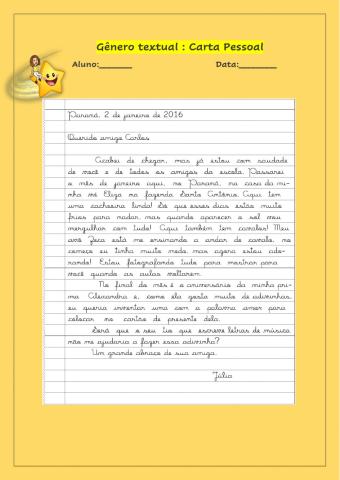 Gênero textual : Carta Pessoal
Aluno:______ Data:_______
Paraná, 2 de janeiro de 2016
Querido amigo Carlos
Acabei de chegar, mas já estou com saudade
de você e de todos os amigos da escola. Passarei
o mês de janeiro aqui, no Paraná, na casa da mi-
nha vó Eliza na fazenda Santo Antônio. Aqui tem
uma cachoeira linda! Só que esses dias estão muito
frios para nadar, mas quando aparecer o sol vou
mergulhar com tudo! Aqui também tem cavalos! Meu
avô Zeca está me ensinando a andar de cavalo, no
começo eu tinha muito medo, mas agora estou ado-
rando! Estou fotografando tudo para mostrar para
você quando as aulas voltarem.
No final do mês é o aniversário da minha pri-
ma Alexandra e, como ela gosta muito de adivinhas,
eu queria inventar uma com a palavra amor para
colocar no cartão de presente dela.
Será que o seu tio que escreve letras de música
não me ajudaria a fazer essa adivinha?
Um grande abraço de sua amiga.
Júlia